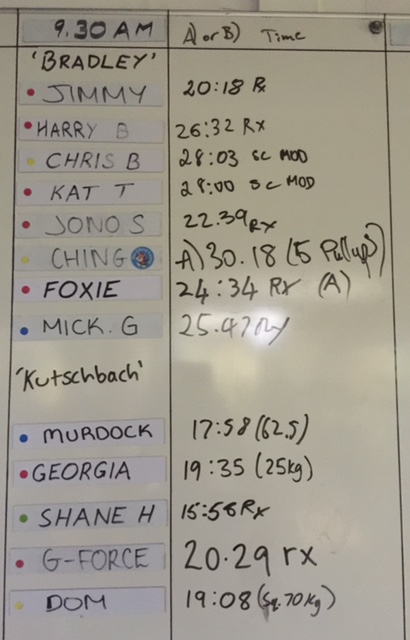 9.30 AM A) or B) Time
'BRADLEY'
JIMMY 20:18 Rx
HARRY B 26:32 Rx
CHRIS B 28:03 SC MOD
KAT T 28:00 SC MOD
JONO S 22.39 Rx
CHING A) 30.18 (15 Pullups)
FOXIE 24:34 Rx (A)
MICK. G 25.47 Rx
'Kutschbach'
MURDOCK 17:58 (62.5)
GEORGIA 19:35 (25kg)
SHANE H 15:56 Rx
G-FORCE 20.29 rx
DOM 19:08 (Sq. 70kg)